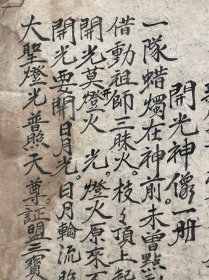 開光神像一册
一隊蜡燭在神前未曾點
借動祖師三昧火枝々頂上起
開光莫燈火光燈火原來不
開光要開日月光日月輪流照
大聖燈光普照天尊証盟三寶